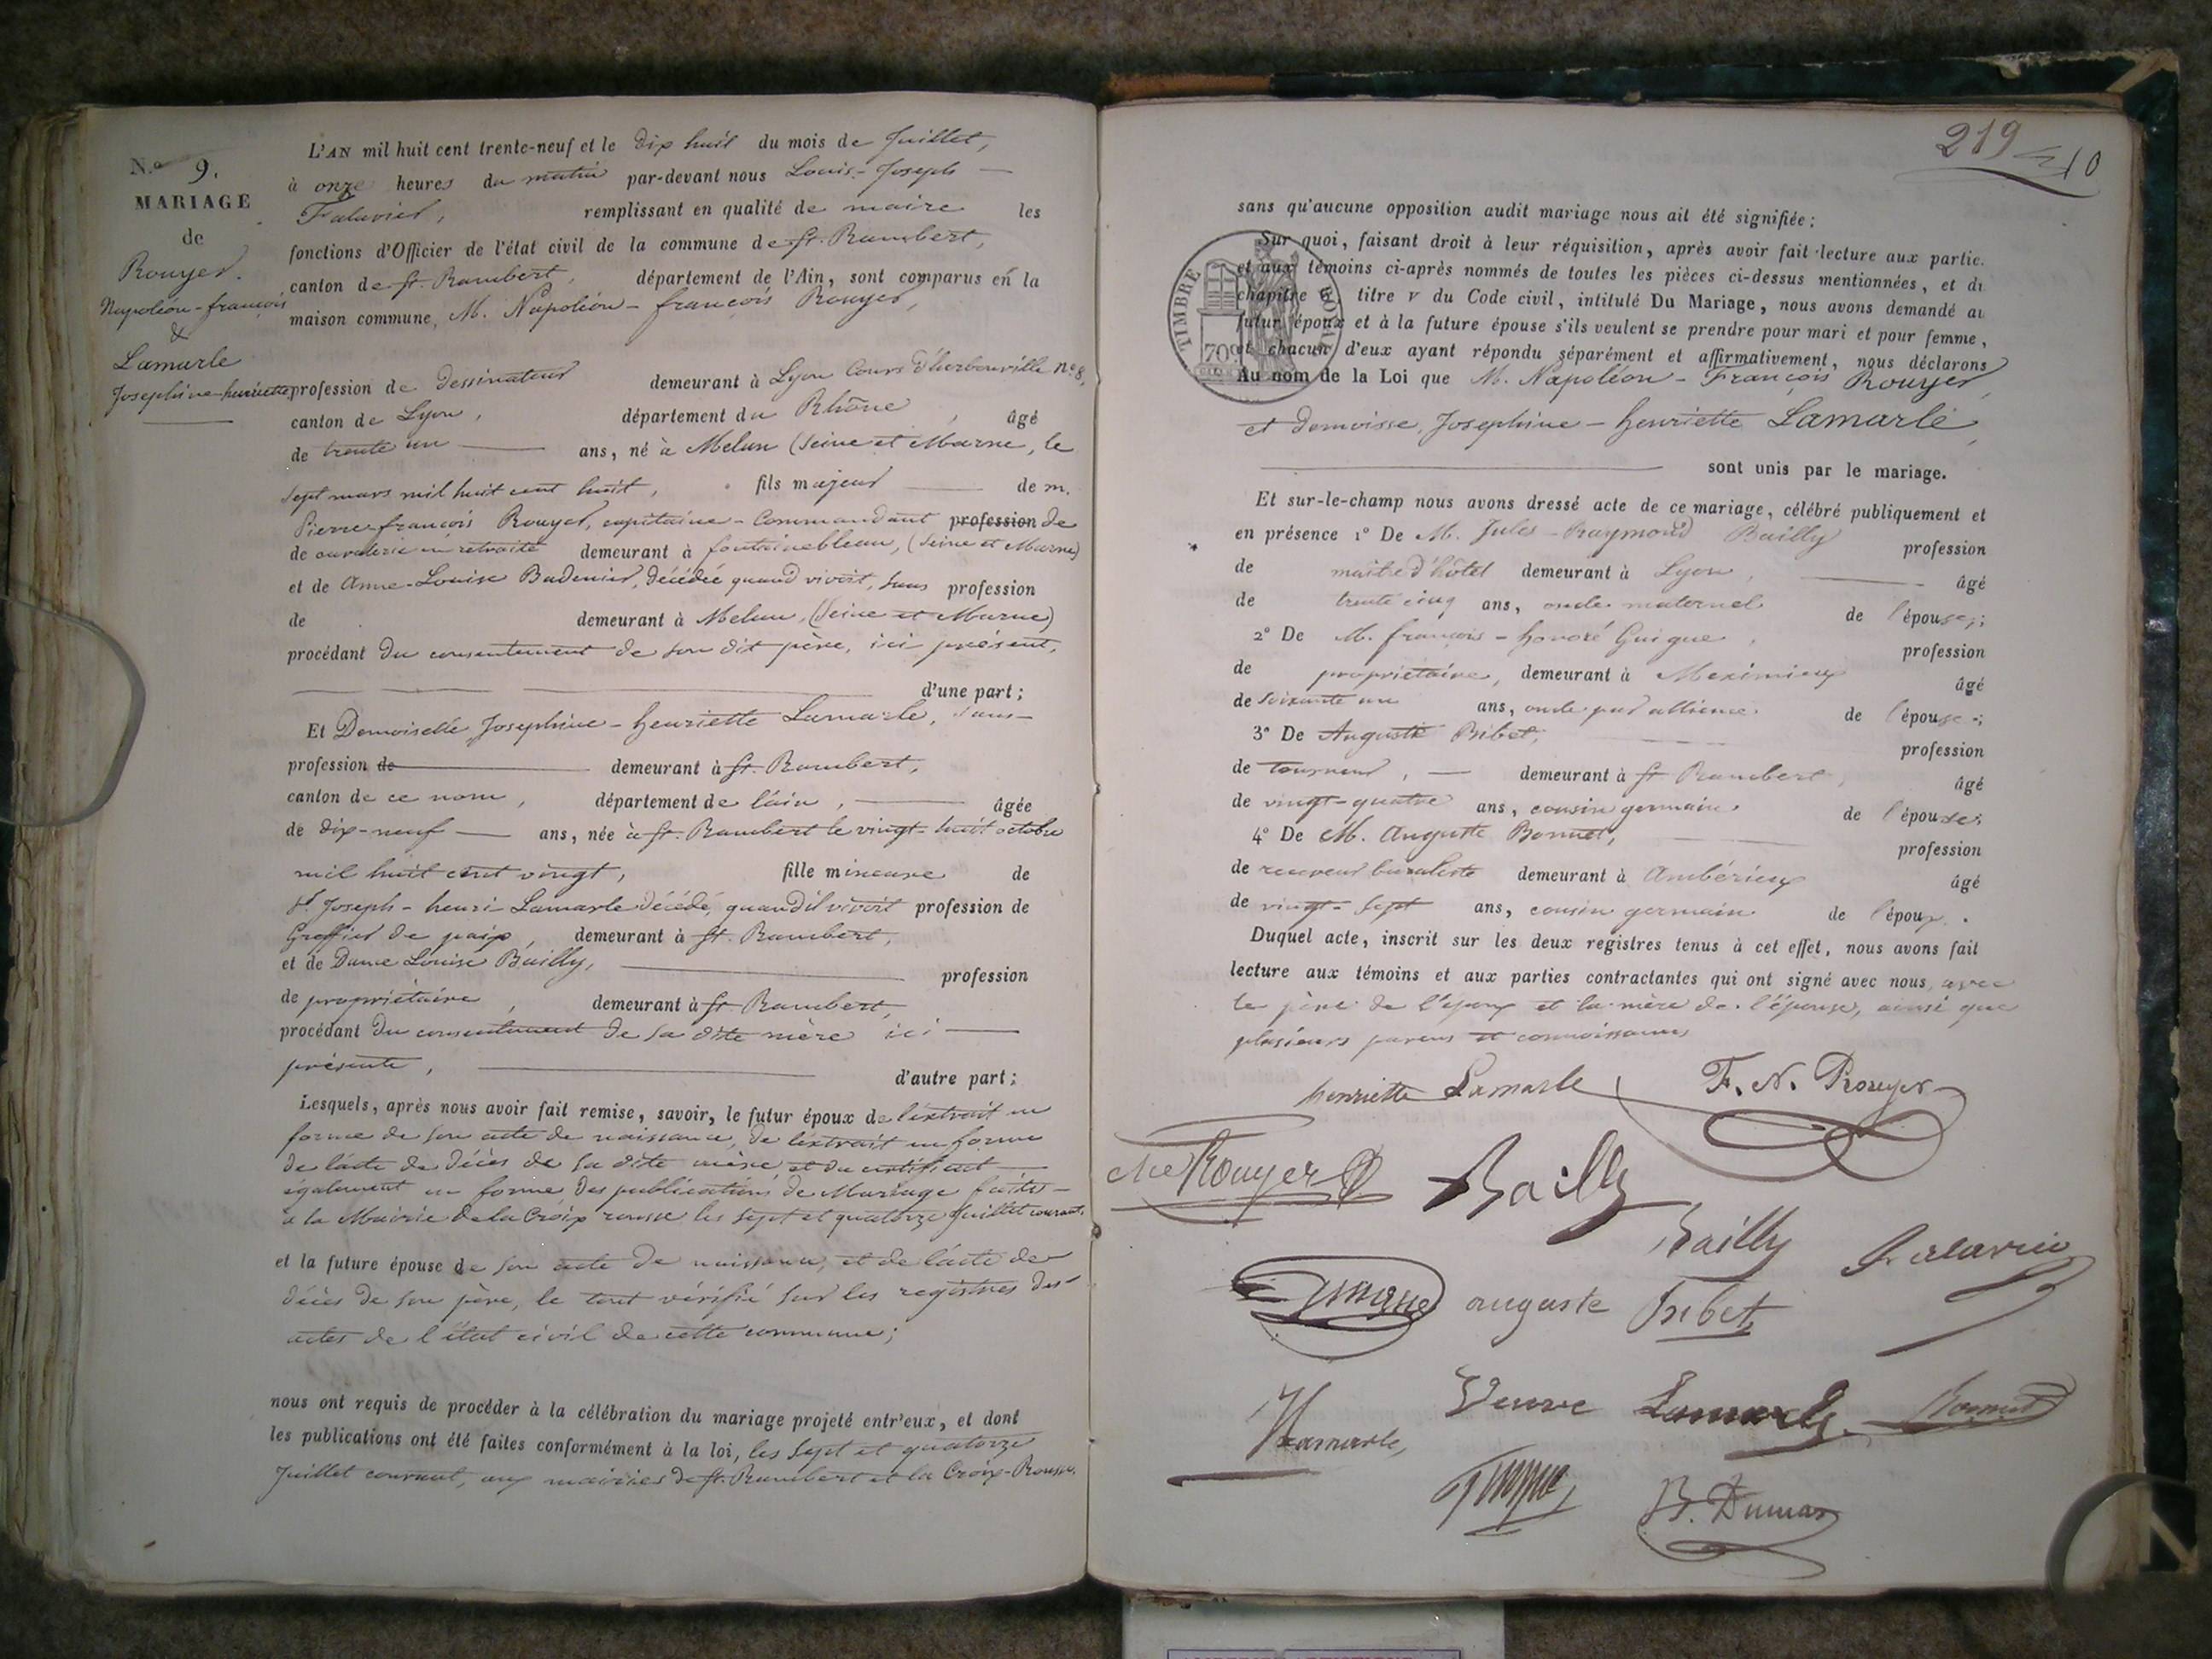 N.o 9.
MARIAGE
de
Rouyer.
Napoléon-françois
&
Lamarle
Josephine-henriette
L'AN mil huit cent trente-neuf et le dix huit du mois de Juillet,
à onze heures du matin par-devant nous Louis-Joseph
remplissant en qualité de maire les
fonctions d'Officier de l'état civil de la commune de St. Rambert,
canton de St. Rambert, département de l'Ain, sont comparus en la
maison commune, M. Napoléon-françois Rouyer,
profession de dessinateur demeurant à Lyon Cours d'herbouville no 8,
canton de Lyon, département du Rhône, âgé
de trente un ans, né à Melun (Seine et Marne, le
sept mars mil huit cent huit, fils majeur de m.
Pierre-françois Rouyer, capitaine-Commandant profession de
de cavalerie en retraite demeurant à fontainebleau, (Seine et Marne)
et de Anne-Louise Badenier, décédée quand vivoit, sans profession
de demeurant à Melun, (Seine et Marne)
procédant du consentement de son dit père, ici présent,
d'une part;
Et Demoiselle Josephine-henriette Lamarle, sans-
profession de demeurant à St. Rambert,
canton de ce nom, département de l'ain, âgée
de dix-neuf ans, née à St. Rambert le vingt-huit octobre
mil huit cent vingt, fille mineure de
St. Joseph-henri Lamarle décédé, quand il vivoit profession de
Greffier de paix, demeurant à St. Rambert,
et de Dame Louise Bailly, profession
de propriétaire, demeurant à St. Rambert,
procédant du consentement de sa dite mère ici
présente, d'autre part;
Lesquels, après nous avoir fait remise, savoir, le futur époux de l'extrait en
forme de son acte de naissance, de l'extrait en forme
de l'acte de décès de sa dite mère et du certificat
également en forme, des publications de Mariage faites-
à la Mairie de la Croix rousse les sept et quatorze Juillet courant,
et la future épouse de son acte de naissance, et de l'acte de
décès de son père, le tout vérifié sur les registres des
actes de l'état civil de cette commune;
nous ont requis de procéder à la célébration du mariage projeté entr'eux, et dont
les publications ont été faites conformément à la loi, les sept et quatorze
Juillet courant, aux mairies de St. Rambert et la Croix-Rousse.
219
10
sans qu'aucune opposition audit mariage nous ait été signifiée;
Sur quoi, faisant droit à leur réquisition, après avoir fait lecture aux partie.
et aux témoins ci-après nommés de toutes les pièces ci-dessus mentionnées, et du
chapitre titre v du Code civil, intitulé Du Mariage, nous avons demandé au
futur époux et à la future épouse s'ils veulent se prendre pour mari et pour femme,
et chacun d'eux ayant répondu séparément et affirmativement, nous déclarons
TIMBRE ROYAL
70c
Au nom de la Loi que M. Napoléon-François Rouyer,
et demoisse, Josephine-henriette Lamarle,
sont unis par le mariage.
Et sur-le-champ nous avons dressé acte de ce mariage, célébré publiquement et
en présence 1o De M. Jules-Raymond Bailly profession
de maître d'hôtel demeurant à Lyon, âgé
de trente cinq ans, oncle maternel de l'épouse;
2o De M. françois-honoré Guigue, profession
de propriétaire, demeurant à Meximieux âgé
de soixante un ans, oncle par alliance. de l'épouse;
3o De Auguste Bibet, profession
de tourneur, demeurant à St Rambert, âgé
de vingt-quatre ans, cousin germain, de l'épouse;
4o De M. Auguste Bonnet, profession
de receveur buraliste demeurant à Ambérieux âgé
de vingt-sept ans, cousin germain de l'époux.
Duquel acte, inscrit sur les deux registres tenus à cet effet, nous avons fait
lecture aux témoins et aux parties contractantes qui ont signé avec nous, avec
le père de l'époux et la mère de l'épouse, ainsi que
plusieurs parens et connoissances
henriette Lamarle F. N. Rouyer
Rouyer Bailly
Bailly
auguste Bibet
Veuve Lamarle Bonnet
Lamarle,
B. Dumas